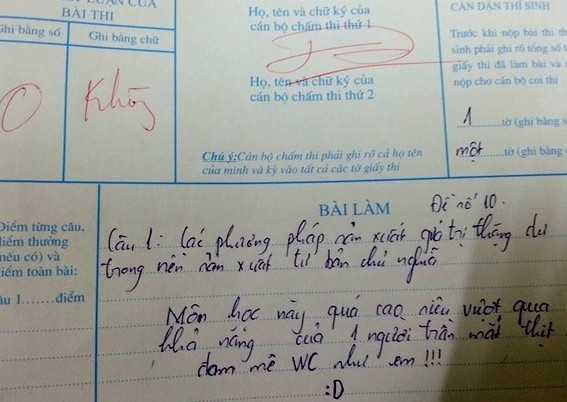 LUẬN CỦA
BÀI THI
Ghi bằng số
Ghi bằng chữ
0
Không
Họ, tên và chữ ký của
cán bộ chấm thi thứ 1
Họ, tên và chữ ký của
cán bộ chấm thi thứ 2
Chú ý: Cán bộ chấm thi phải ghi rõ cả họ tên
của mình và ký vào tất cả các tờ giấy thi
CĂN DẶN THÍ SINH
Trước khi nộp bài thi
sinh phải ghi rõ tổng số
giấy thi đã làm bài và
nộp cho cán bộ coi thi
1 tờ (ghi bằng
một tờ (ghi bằng
Điểm từng câu,
điểm thưởng
(nếu có) và
điểm toàn bài:
Câu 1......điểm
BÀI LÀM
Đề số 10.
Câu 1: Các phương pháp sản xuất giá trị thặng dư
trong nền sản xuất tư bản chủ nghĩa
Môn học này quá cao siêu vượt qua
khả năng của 1 người trần mắt thịt
đam mê WC như em !!!
:D